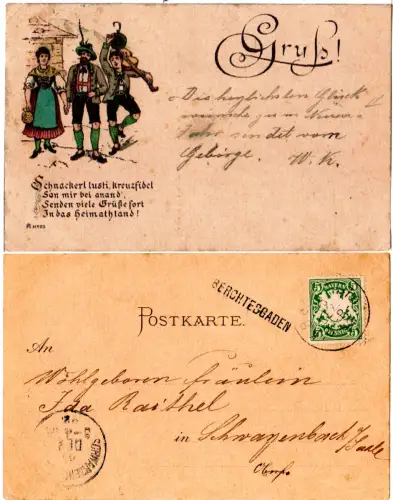 Gruß!
Die herzlichsten Glück
wünsche zu
Jahr sendet vom
Gebirge. W. K.
Schnackerl lusti, kreuzfidel
San mir bei anand,
Senden viele Grüße fort
In das Heimathland!
BERCHTESGADEN
BAYERN
5
5
PFENNIG
POSTKARTE.
An
Wohlgeboren Fräulein
Ida Raithel
in Schwarzenbach a/Saale